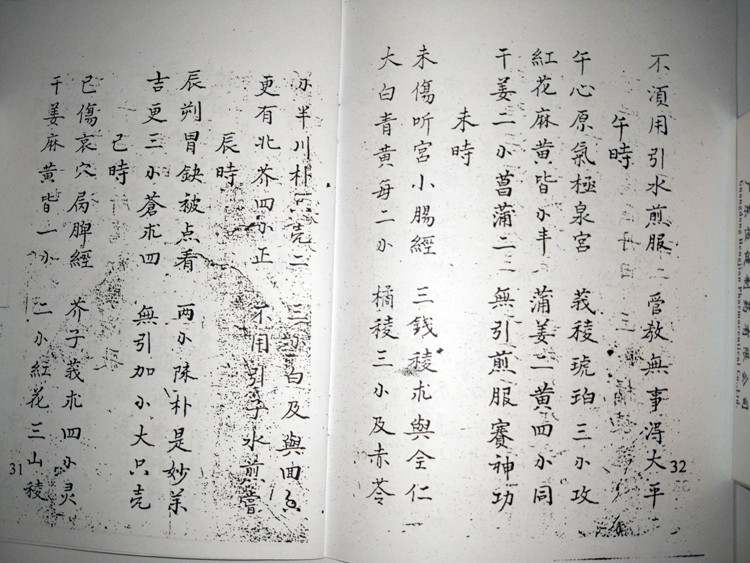 小半川朴只壳二　三小白及與田
更有北芥四小正　不用引子水煎管
辰時
辰朔胃缺被点看　两小陳朴是妙茶
吉更三小蒼朮四　無引加小大只壳
己時
已傷哀穴局脾經　芥子莪朮四小灵
干姜麻黄皆一小　二小紅花三山稜
31
不須用引水煎服　管教無事得大平
午時
午心原氣極泉宮　莪稜琥珀三小攻
紅花麻黄皆小半　蒲姜二黄四小同
干姜二小菖蒲二　無引煎服賽神功
未時
未傷听宮小腸經　三錢稜朮與仝仁
大白青黄每二小　橘稜三小及赤苓
32